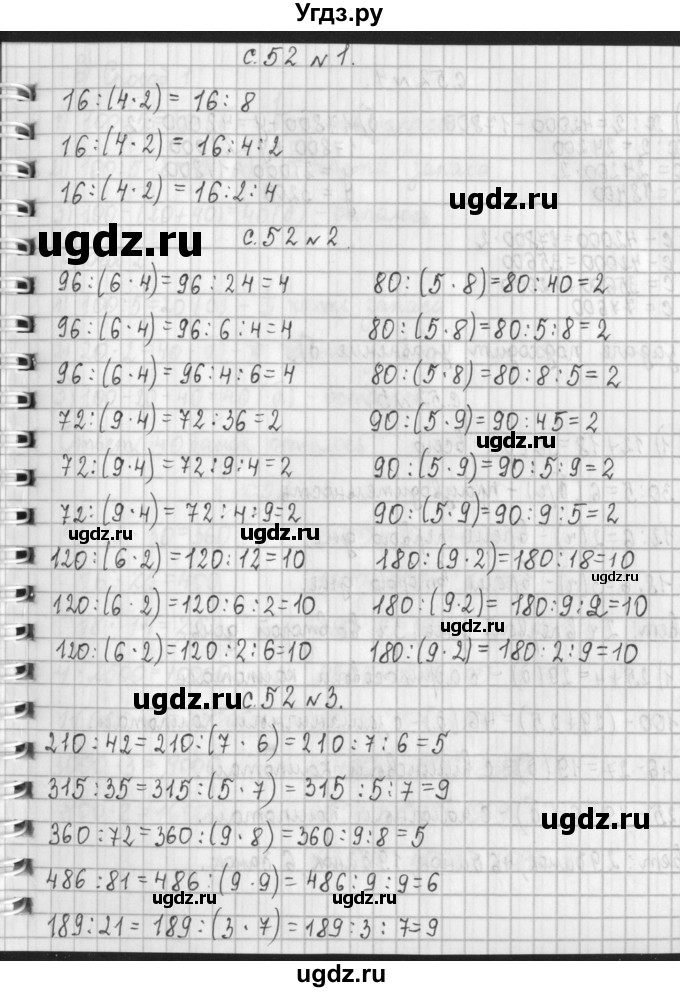 Угдз.ру
с.52 №1.
16:(4·2) = 16:8
16:(4·2) = 16:4:2
16:(4·2) = 16:2:4
ugdz.ru
ugdz.ru
с.52 №2.
96:(6·4)=96:24=4 80:(5·8)=80:40=2
96:(6·4)=96:6:4=4 80:(5·8)=80:5:8=2
96:(6·4)=96:4:6=4 80:(5·8)=80:8:5=2
72:(9·4)=72:36=2 90:(5·9)=90:45=2
ugdz.ru
72:(9·4)=72:9:4=2 90:(5·9)=90:5:9=2
72:(9·4)= 72:4:9=2 90:(5·9)=90:9:5=2
ugdz.ru ugdz.ru
120:(6·2)=120:12=10 180:(9·2)=180:18=10
ugdz.ru
120:(6·2)=120:6:2=10 180:(9·2)= 180:9:2=10
ugdz.ru
120:(6·2)=120:2:6=10 180:(9·2)=180:2:9=10
ugdz.ru
с.52 №3.
210:42=210:(7·6)=210:7:6=5
315:35=315:(5·7)=315:5:7=9
ugdz.ru
360:72=360:(9·8)=360:9:8=5
486:81=486:(9·9)=486:9:9=6
ugdz.ru ugdz.ru
189:21= 189:(3·7)=189:3:7=9
ugdz.ru